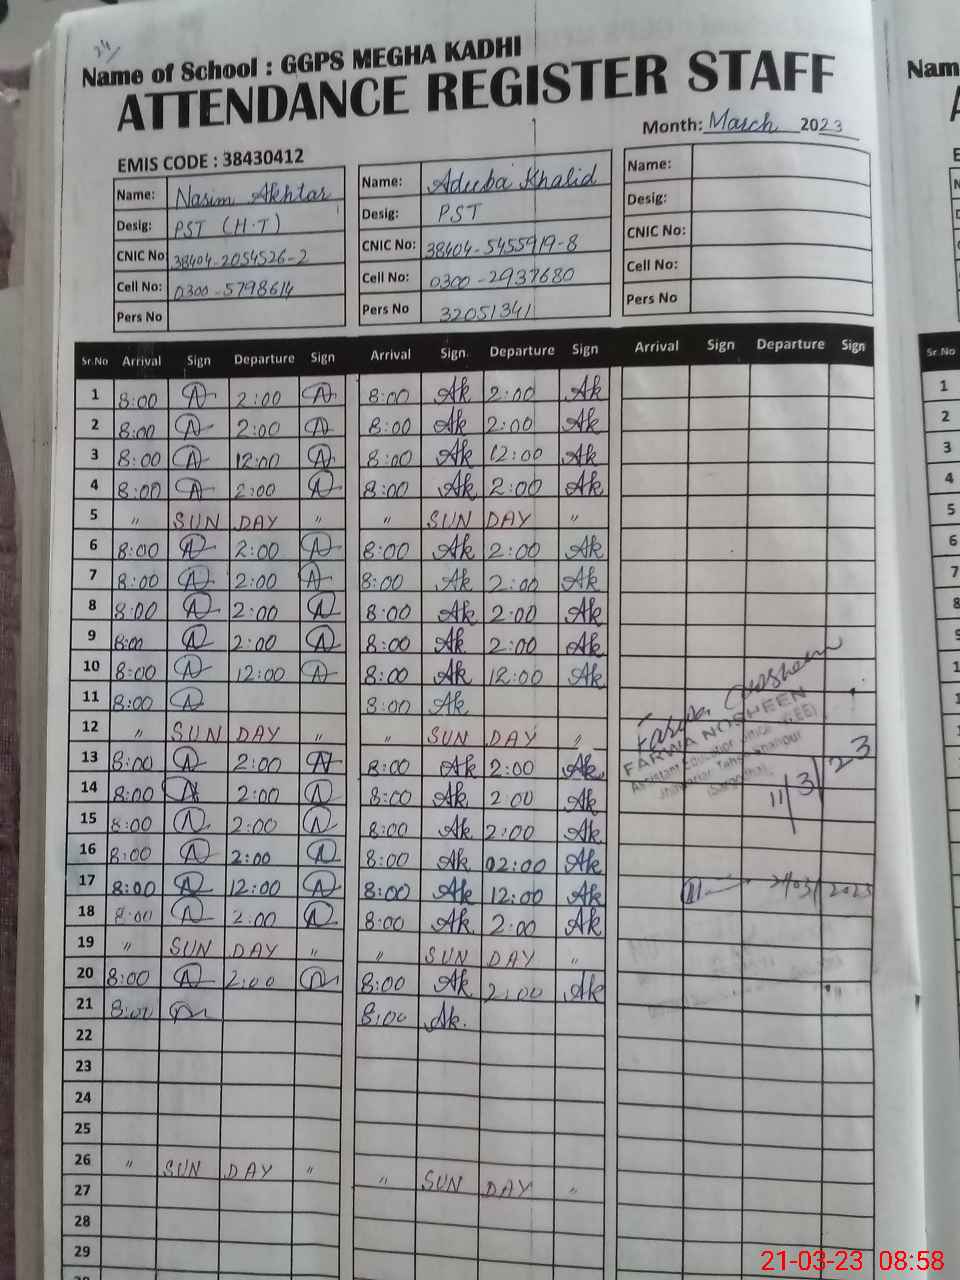 24/
Name of School : GGPS MEGHA KADHI
ATTENDANCE REGISTER STAFF
Month: March 2023
EMIS CODE : 38430412
Name: Nasim Akhtar Name: Adeeba Khalid Name:
Desig: PST (H.T) Desig: PST Desig:
CNIC No 38404-2054526-2 CNIC No: 38404-5455919-8 CNIC No:
Cell No: 0300-5798614 Cell No: 0300-2937680 Cell No:
Pers No Pers No 32051341 Pers No
Sr.No Arrival Sign Departure Sign Arrival Sign. Departure Sign Arrival Sign Departure Sign
1 8:00 A 2:00 A 8:00 Ak 2:00 Ak
2 8:00 A 2:00 A 8:00 Ak 2:00 Ak
3 8:00 A 12:00 A 8:00 Ak 12:00 Ak
4 8:00 A 2:00 A 8:00 Ak 2:00 Ak
5 " SUN DAY " " SUN DAY "
6 8:00 A 2:00 A 8:00 Ak 2:00 Ak
7 8:00 A 2:00 A 8:00 Ak 2:00 Ak
8 8:00 A 2:00 A 8:00 Ak 2:00 Ak
9 8:00 A 2:00 A 8:00 Ak 2:00 Ak
10 8:00 A 12:00 A 8:00 Ak 12:00 Ak
11 8:00 A 8:00 Ak
12 " SUN DAY " " SUN DAY "
FARWA NOSHEEN
Assistant Education Officer (WEE)
11/3/23
13 8:00 A 2:00 A 8:00 Ak 2:00 Ak
14 8:00 A 2:00 A 8:00 Ak 2:00 Ak
15 8:00 A 2:00 A 8:00 Ak 2:00 Ak
16 8:00 A 2:00 A 8:00 Ak 02:00 Ak
17 8:00 A 12:00 A 8:00 Ak 12:00 Ak
18 8:00 A 2:00 A 8:00 Ak 2:00 Ak
19 " SUN DAY " " SUN DAY "
20 8:00 A 2:00 A 8:00 Ak 2:00 Ak
21 8:00 A 8:00 Ak.
22
23
24
25
26 " SUN DAY "
27 " SUN DAY "
28
29
Nam
Sr.No
1
2
3
4
5
6
7
8
9
21-03-23 08:58